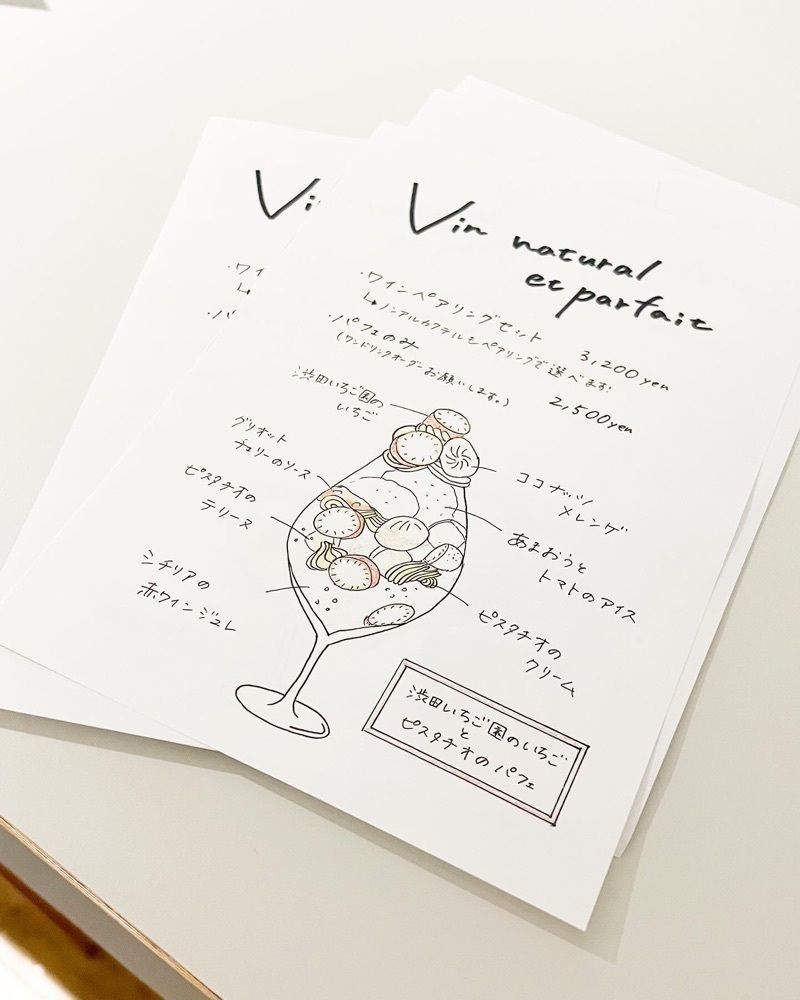 Vin natural
et parfait
・ワインペアリングセット 3,200yen
↳ノンアルカクテルもペアリングで選べます!
・パフェのみ 2,500yen
(ワンドリンクオーダーお願いします。)
渋田いちご園の
いちご
グリオット
チェリーのソース
ピスタチオの
テリーヌ
シチリアの
赤ワインジュレ
ココナッツ
メレンゲ
あまおうと
トマトのアイス
ピスタチオの
クリーム
渋田いちご園のいちご
と
ピスタチオのパフェ
Vi
・ワイ
↳
・パ